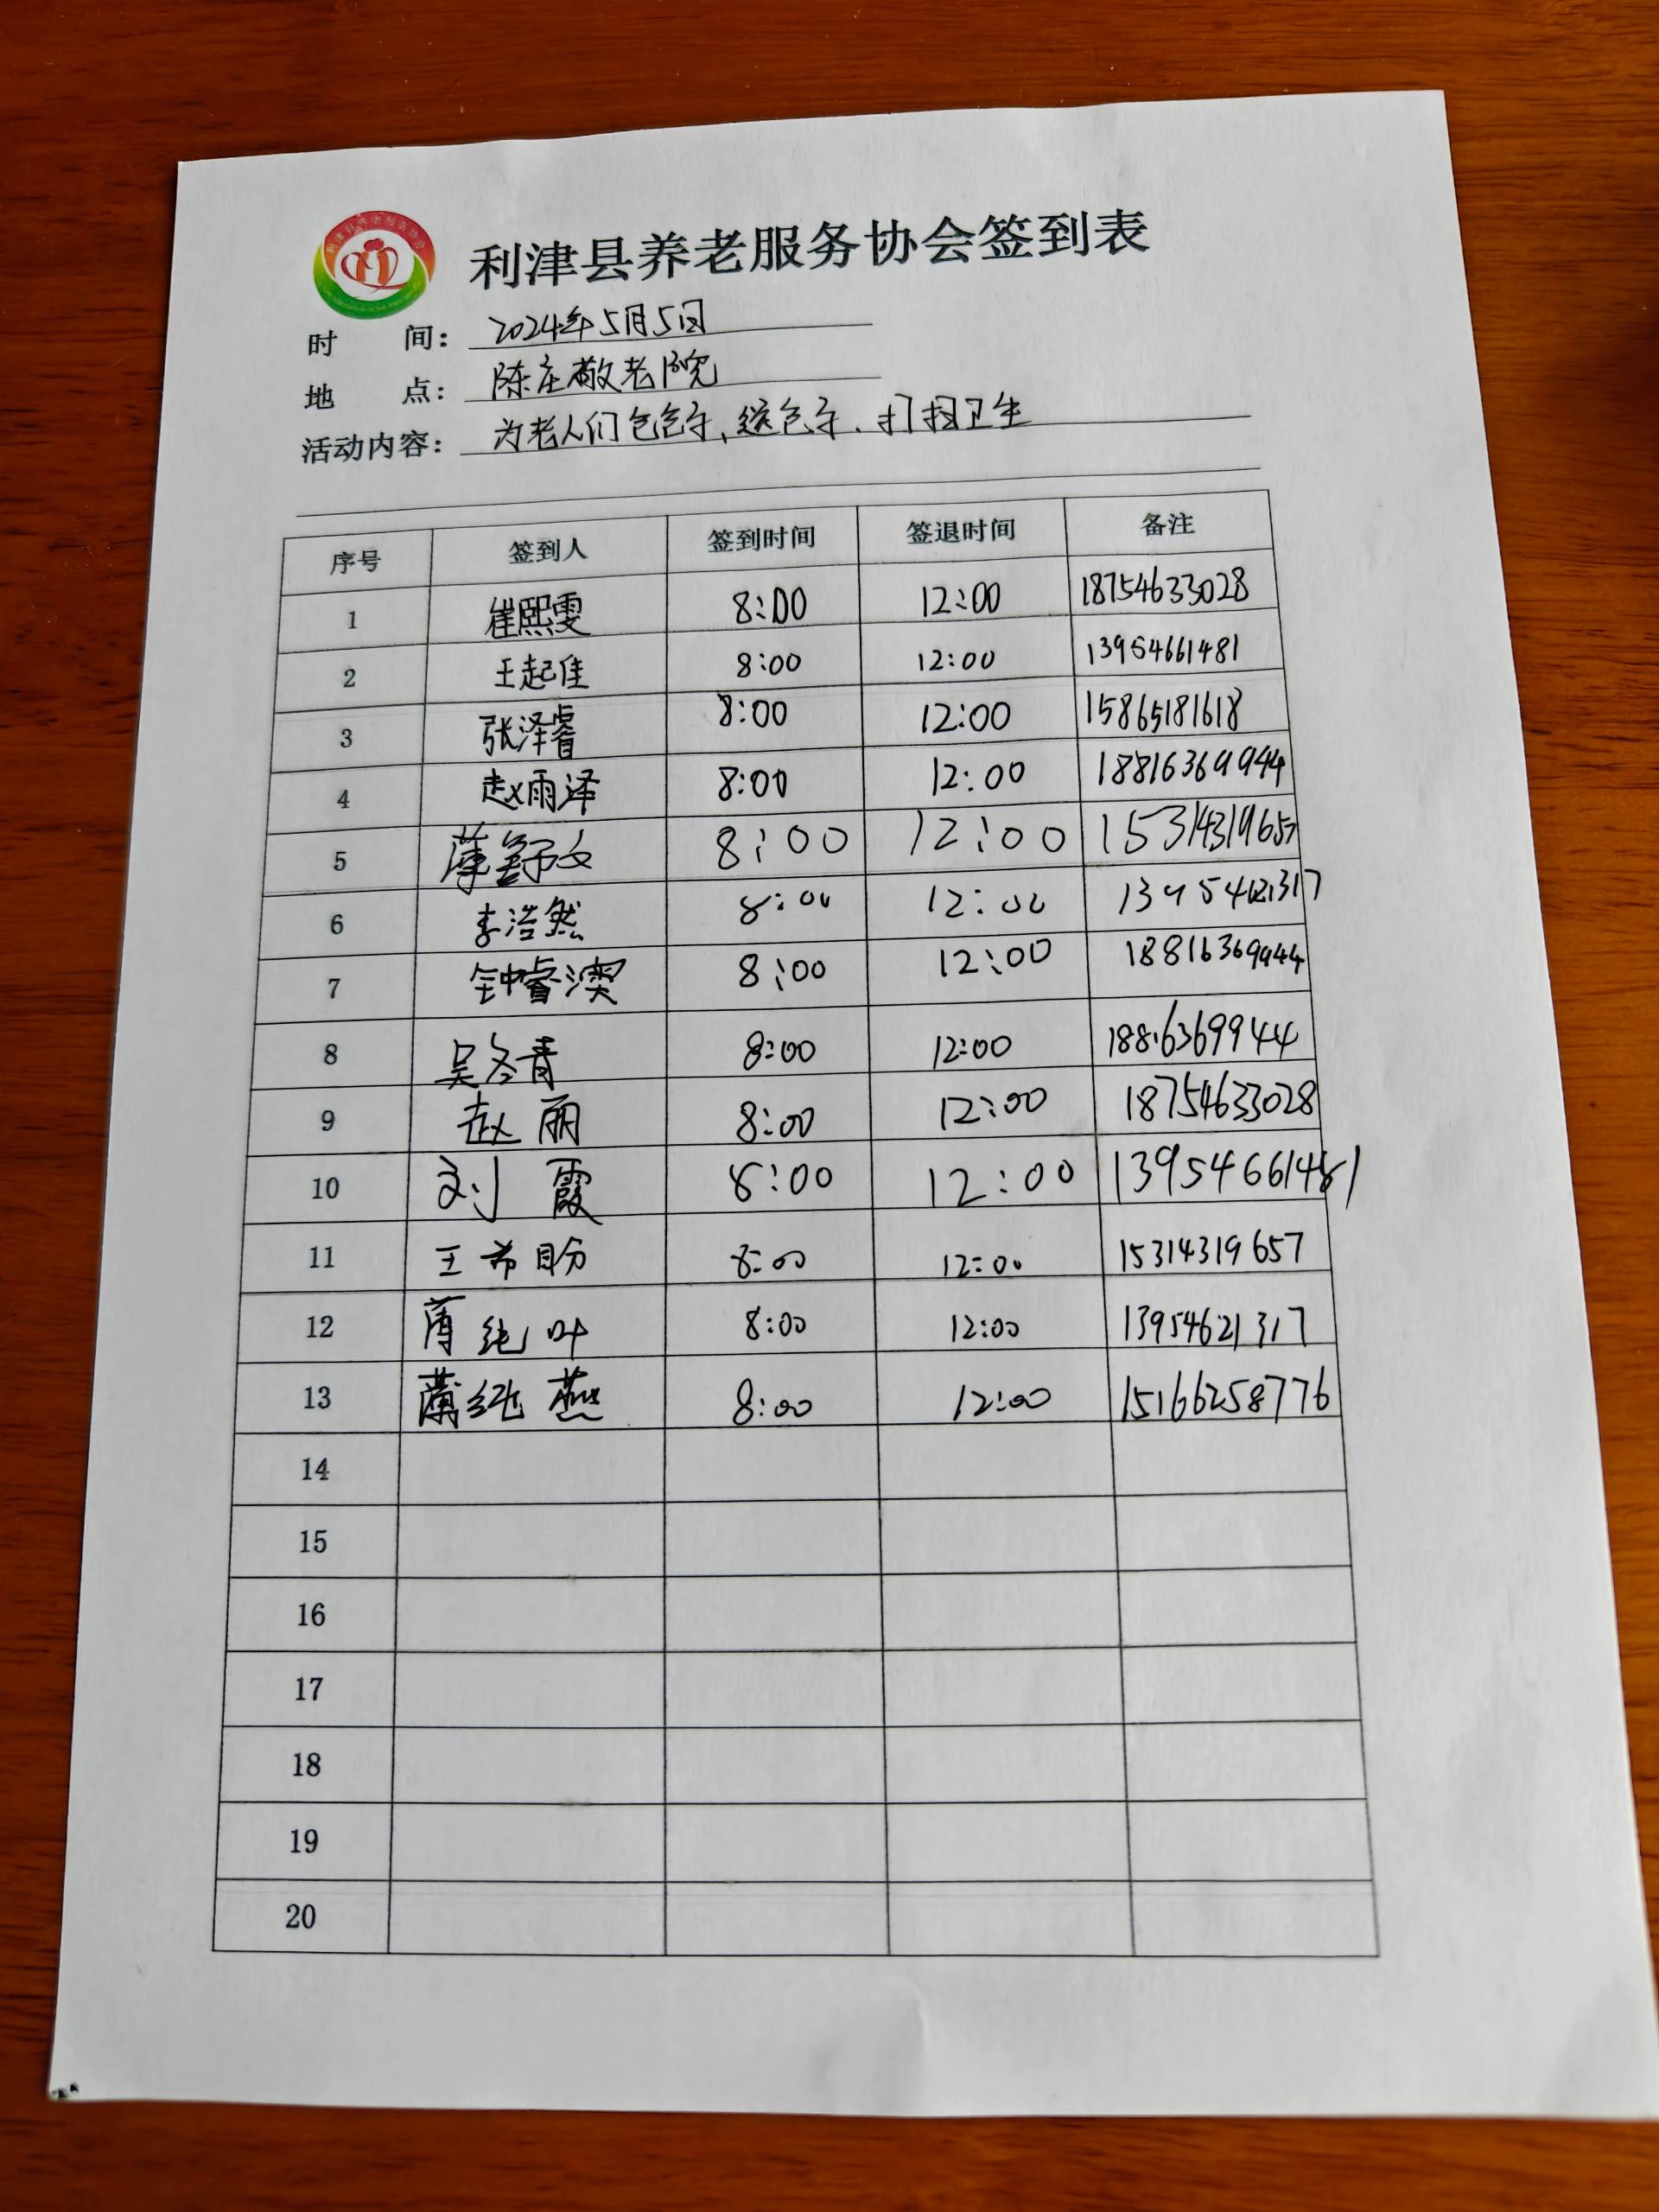 利津县养老服务协会签到表
时 间: 2024年5月5日
地 点: 陈庄敬老院
活动内容: 为老人们包包子、送包子、打扫卫生
序号 签到人 签到时间 签退时间 备注
1 崔熙雯 8:00 12:00 18754633028
2 王起佳 8:00 12:00 13954661481
3 张泽睿 8:00 12:00 15865181618
4 赵雨泽 8:00 12:00 18816369944
5 薄舒文 8:00 12:00 15314319657
6 李浩然 8:00 12:00 13954621317
7 钟睿澳 8:00 12:00 18816369944
8 吴冬青 8:00 12:00 18816369944
9 赵丽 8:00 12:00 18754633028
10 刘霞 8:00 12:00 13954661481
11 王希盼 8:00 12:00 15314319657
12 薄纯叶 8:00 12:00 13954621317
13 薄纯燕 8:00 12:00 15166258776
14
15
16
17
18
19
20